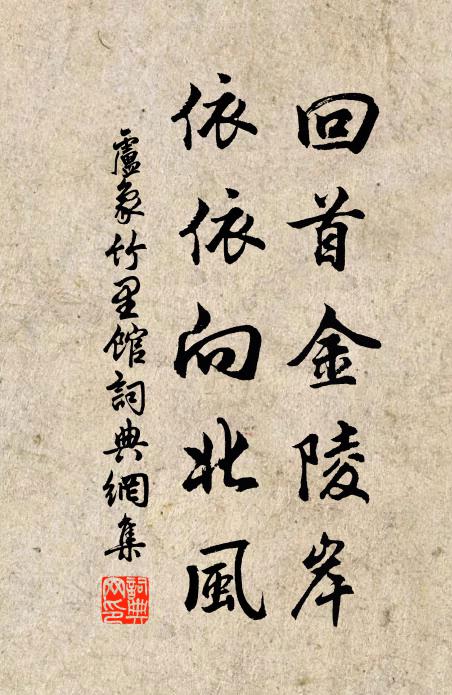 回首金陵岸
依依向北風
盧象竹里館詞典網集
詞典網印